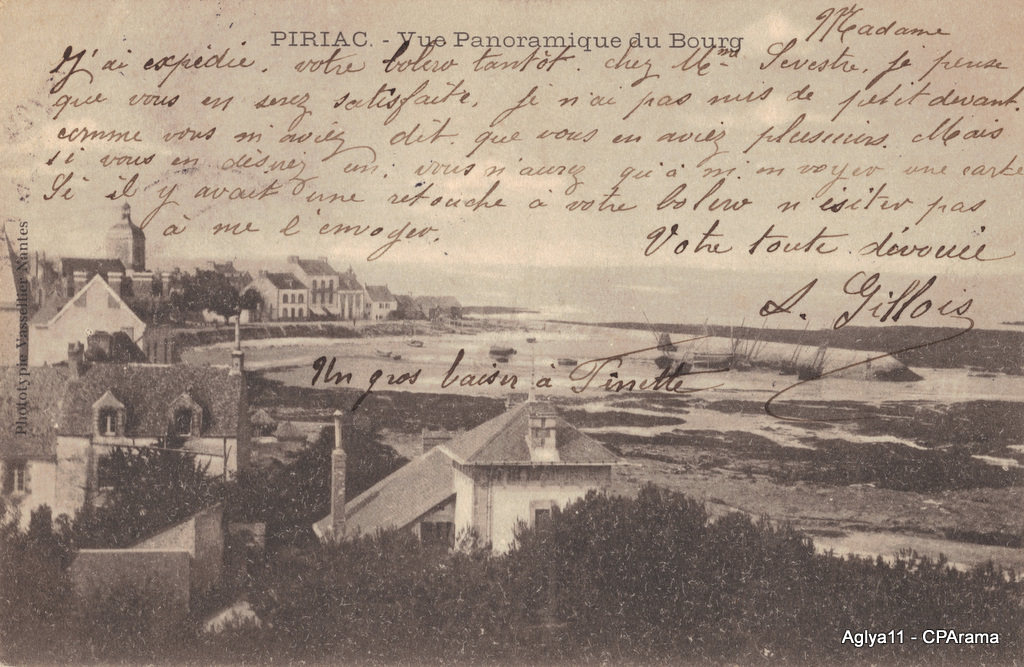 PIRIAC. - Vue Panoramique du Bourg
Madame
J'ai expédié, votre bolero tantôt. chez Mme Sevestre, je pense
que vous en serez satisfaite, je n'ai pas mis de petit devant,
comme vous m'aviez dit que vous en aviez plusieurs. Mais
si vous en désirez un, vous n'aurez qu'à m'envoyer une carte
Si il y avait une retouche à votre bolero n'ésiter pas
à me l'envoyer.
Votre toute dévouée
L. Gillois
Un gros baiser à Tinette
Phototypie Vasselier Nantes
Aglya11 - CPArama